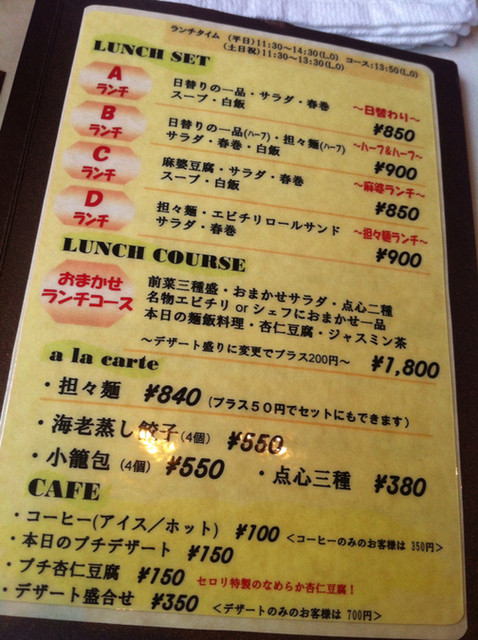 ランチタイム (平日)11:30〜14:30(L.O) コース:13:50(L.O)
(土日祝)11:30〜13:30(L.O)
LUNCH SET
A
ランチ
日替りの一品・サラダ・春巻
スープ・白飯
〜日替わり〜
¥850
B
ランチ
日替りの一品(ハーフ)・担々麺(ハーフ)
サラダ・春巻・白飯
〜ハーフ&ハーフ〜
¥900
C
ランチ
麻婆豆腐・サラダ・春巻
スープ・白飯
〜麻婆ランチ〜
¥850
D
ランチ
担々麺・エビチリロールサンド
サラダ・春巻
〜担々麺ランチ〜
¥900
LUNCH COURSE
おまかせ
ランチコース
前菜三種盛・おまかせサラダ・点心二種
名物エビチリ or シェフにおまかせ一品
本日の麺飯料理・杏仁豆腐・ジャスミン茶
〜デザート盛りに変更でプラス200円〜 ¥1,800
a la carte
・担々麺 ¥840 (プラス50円でセットにもできます)
・海老蒸し餃子(4個) ¥550
・小籠包 (4個) ¥550 ・点心三種 ¥380
CAFE
・コーヒー(アイス／ホット) ¥100 <コーヒーのみのお客様は 350円>
・本日のプチデザート ¥150
・プチ杏仁豆腐 ¥150 セロリ特製のなめらか杏仁豆腐！
・デザート盛合せ ¥350 <デザートのみのお客様は 700円>